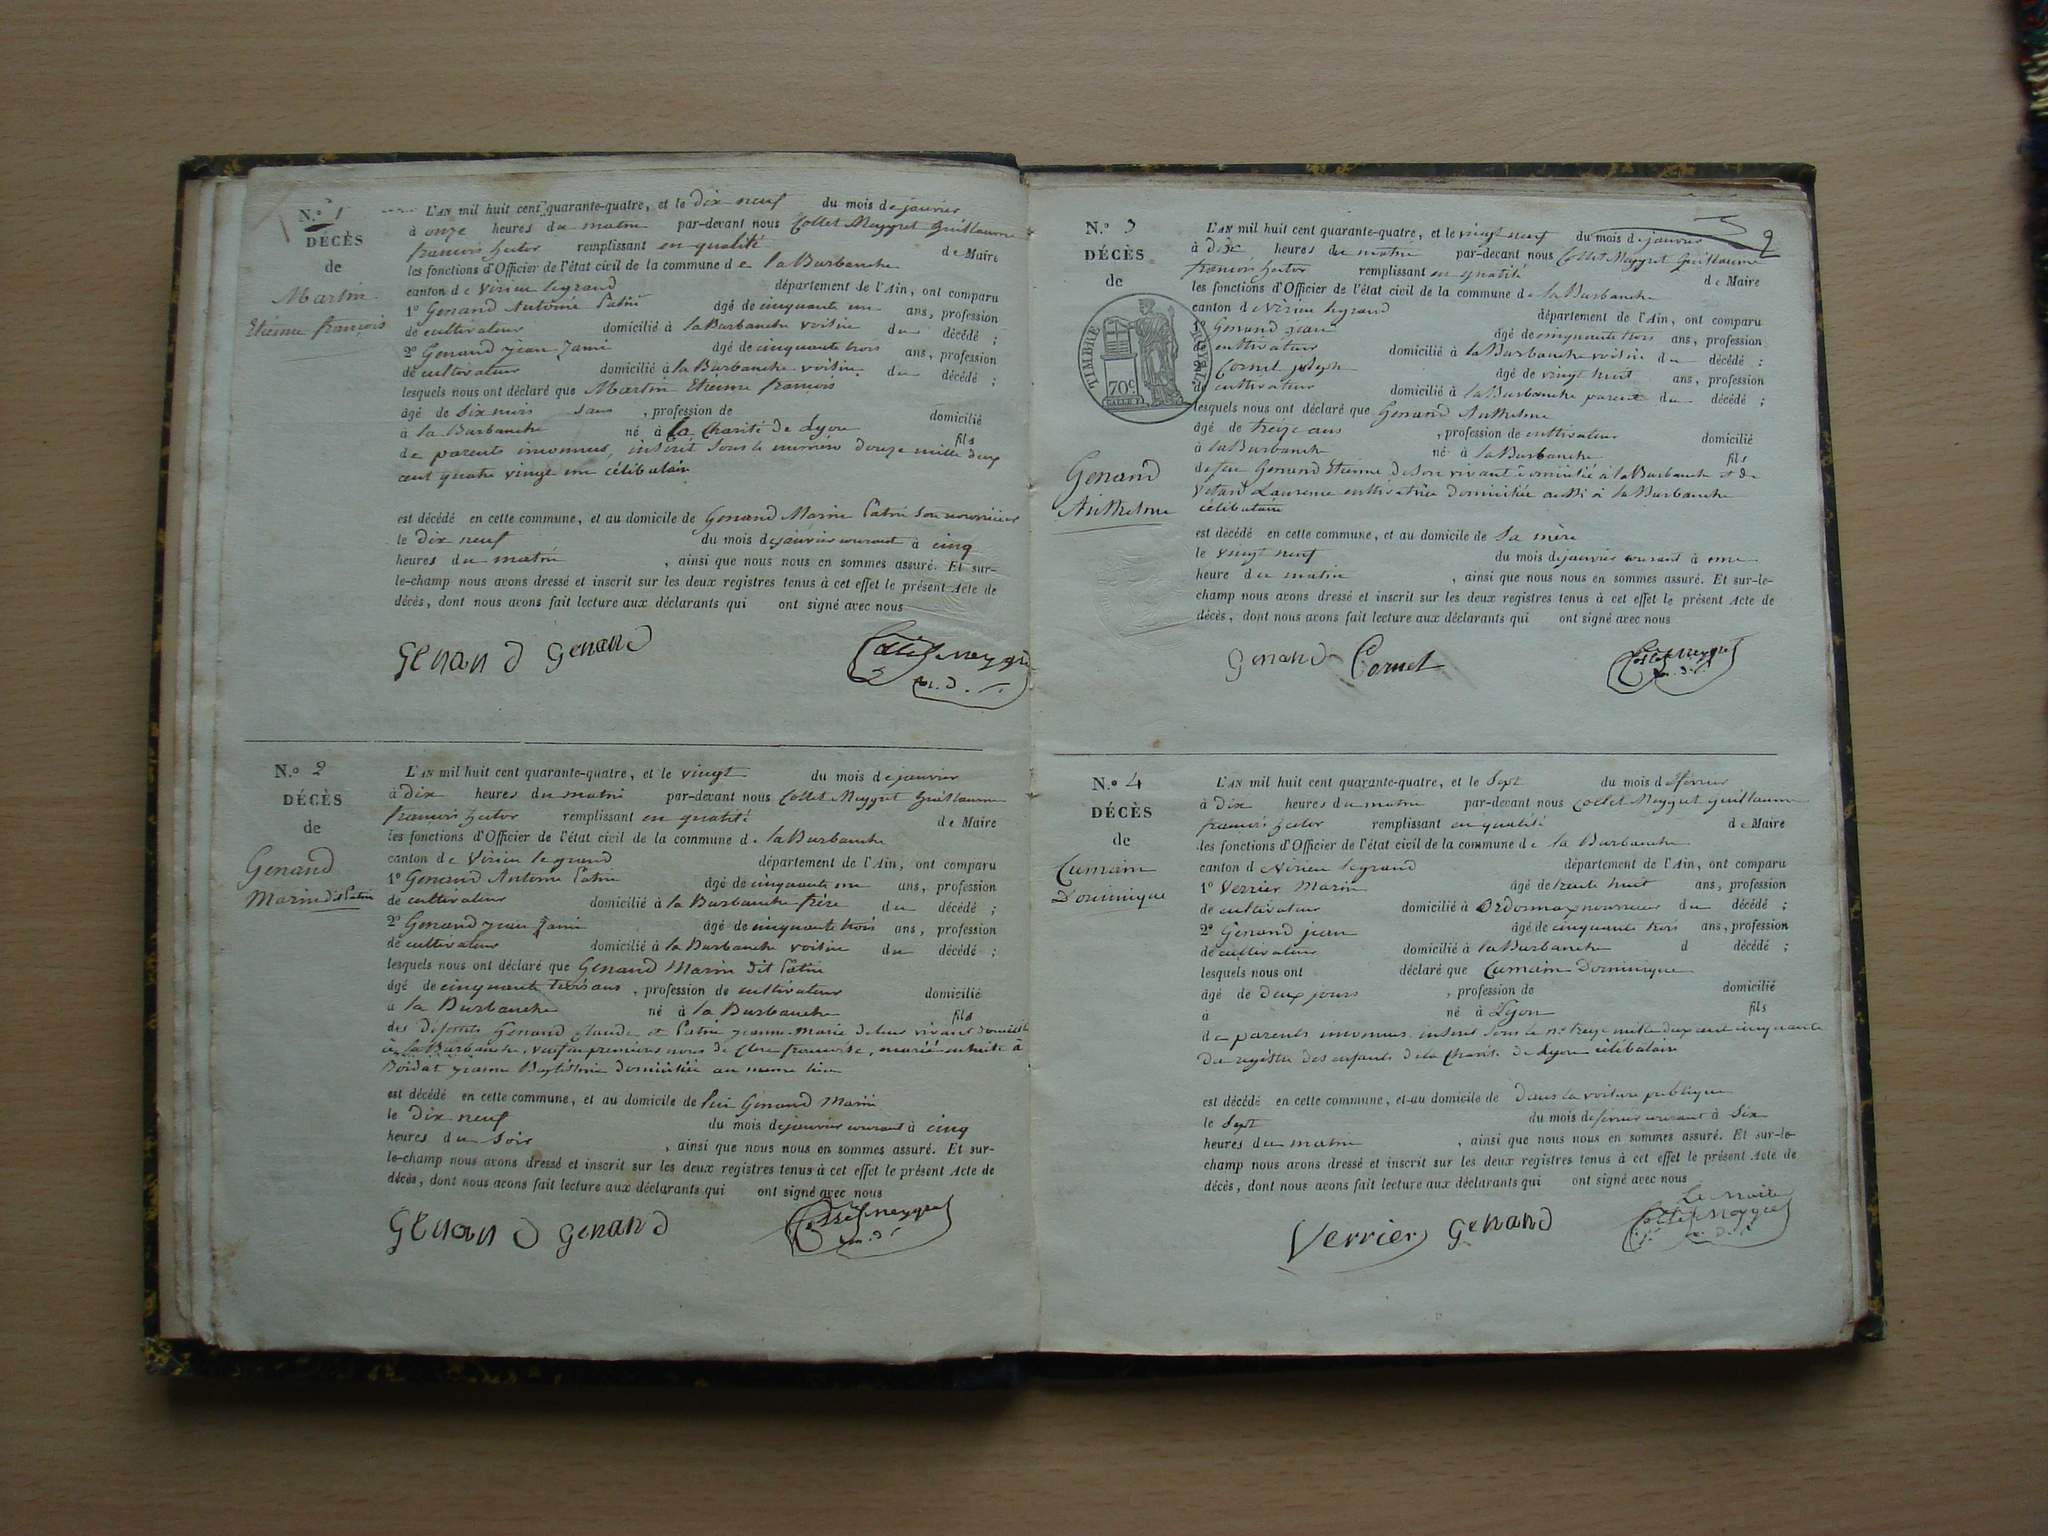 N.o 1
DÉCÈS
de
Martin
Etienne françois
L'AN mil huit cent quarante-quatre, et le dix neuf du mois de janvier
à onze heures du matin par-devant nous Collet Meygret Guillaume
françois hector remplissant en qualité de Maire
les fonctions d'Officier de l'état civil de la commune de la Burbanche
canton de Virieu legrand département de l'Ain, ont comparu
1o Genand Antoine Patin âgé de cinquante un ans, profession
de cultivateur domicilié à la Burbanche voisin du décédé ;
2o Genand jean âgé de cinquante trois ans, profession
de cultivateur domicilié à la Burbanche voisin du décédé ;
lesquels nous ont déclaré que Martin Etienne françois
âgé de six mois sans , profession de domicilié
à la Burbanche né à la Charité de Lyon fils
de parents inconnus, inscrit sous le numéro douze mille deux
cent quatre vingt un célibataire
est décédé en cette commune, et au domicile de Genand Marin Patin son nourricier
le dix neuf du mois de janvier courant à cinq
heures du matin , ainsi que nous nous en sommes assuré. Et sur-
le-champ nous avons dressé et inscrit sur les deux registres tenus à cet effet le présent Acte de
décès, dont nous avons fait lecture aux déclarants qui ont signé avec nous
Genand Genand Collet Meygret
N.o 2
DÉCÈS
de
Genand
Marin dit Patin
L'AN mil huit cent quarante-quatre, et le vingt du mois de janvier
à dix heures du matin par-devant nous Collet Meygret Guillaume
françois hector remplissant en qualité de Maire
les fonctions d'Officier de l'état civil de la commune de la Burbanche
canton de Virieu legrand département de l'Ain, ont comparu
1o Genand Antoine Patin âgé de cinquante un ans, profession
de cultivateur domicilié à la Burbanche frère du décédé ;
2o Genand jean âgé de cinquante trois ans, profession
de cultivateur domicilié à la Burbanche voisin du décédé ;
lesquels nous ont déclaré que Genand Marin dit Patin
âgé de cinquante trois ans , profession de cultivateur domicilié
à la Burbanche né à la Burbanche fils
des défunts Genand Claude et Patin jeanne Marie de leur vivant domiciliés
à la Burbanche, veuf en premières noces de françoise, marié ensuite à
jeanne Baptistine domiciliée au même lieu
est décédé en cette commune, et au domicile de lui Genand Marin
le dix neuf du mois de janvier courant à cinq
heures du soir , ainsi que nous nous en sommes assuré. Et sur-
le-champ nous avons dressé et inscrit sur les deux registres tenus à cet effet le présent Acte de
décès, dont nous avons fait lecture aux déclarants qui ont signé avec nous
Genand Genand Collet Meygret
2
N.o 3
DÉCÈS
de
TIMBRE ROYAL
70c
Genand
Anthelme
L'AN mil huit cent quarante-quatre, et le vingt neuf du mois de janvier
à dix heures du matin par-devant nous Collet Meygret Guillaume
françois hector remplissant en qualité de Maire
les fonctions d'Officier de l'état civil de la commune de la Burbanche
canton de Virieu legrand département de l'Ain, ont comparu
1o Genand jean âgé de cinquante trois ans, profession
cultivateur domicilié à la Burbanche voisin du décédé ;
Cornet joseph âgé de vingt huit ans, profession
de cultivateur domicilié à la Burbanche parent du décédé ;
lesquels nous ont déclaré que Genand Anthelme
âgé de treize ans , profession de cultivateur domicilié
à la Burbanche né à la Burbanche fils
de feu Genand Etienne de son vivant domicilié à la Burbanche et de
Laurence cultivatrice domiciliée aussi à la Burbanche
célibataire
est décédé en cette commune, et au domicile de sa mère
le vingt neuf du mois de janvier courant à une
heure du matin , ainsi que nous nous en sommes assuré. Et sur-le-
champ nous avons dressé et inscrit sur les deux registres tenus à cet effet le présent Acte de
décès, dont nous avons fait lecture aux déclarants qui ont signé avec nous
Genand Cornet Collet Meygret
N.o 4
DÉCÈS
de
Cumain
Dominique
L'AN mil huit cent quarante-quatre, et le sept du mois de février
à dix heures du matin par-devant nous Collet Meygret Guillaume
françois hector remplissant en qualité de Maire
les fonctions d'Officier de l'état civil de la commune de la Burbanche
canton de Virieu legrand département de l'Ain, ont comparu
1o Verrier Marin âgé de trente huit ans, profession
de cultivateur domicilié à Ordonnaz nourricier du décédé ;
2o Genand jean âgé de cinquante trois ans, profession
de cultivateur domicilié à la Burbanche d décédé ;
lesquels nous ont déclaré que Cumain Dominique
âgé de deux jours , profession de domicilié
à né à Lyon fils
de parents inconnus inscrit sous le n.o treize mille deux cent cinquante
du registre des enfants de la Charité de Lyon célibataire
est décédé en cette commune, et au domicile de dans la voiture publique
le sept du mois de février courant à six
heures du matin , ainsi que nous nous en sommes assuré. Et sur-le-
champ nous avons dressé et inscrit sur les deux registres tenus à cet effet le présent Acte de
décès, dont nous avons fait lecture aux déclarants qui ont signé avec nous
Le Maire
Verrier Genand Collet Meygret